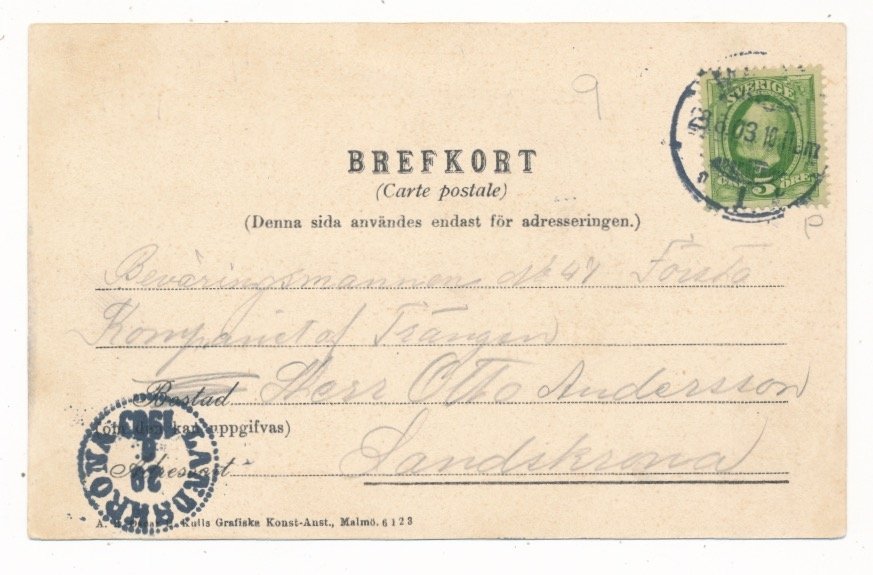 9
SVERIGE
5
ÖRE
29.8.03 10-11 fm
1
P
BREFKORT
(Carte postale)
(Denna sida användes endast för adresseringen.)
Beväringsmannen No 41 Första
Kompaniet af Trängen
Bostad Herr Otto Andersson
uppgifvas)
Adressort Landskrona
LANDSKRONA
29
8
1903
Kulls Grafiska Konst-Anst., Malmö. 6123